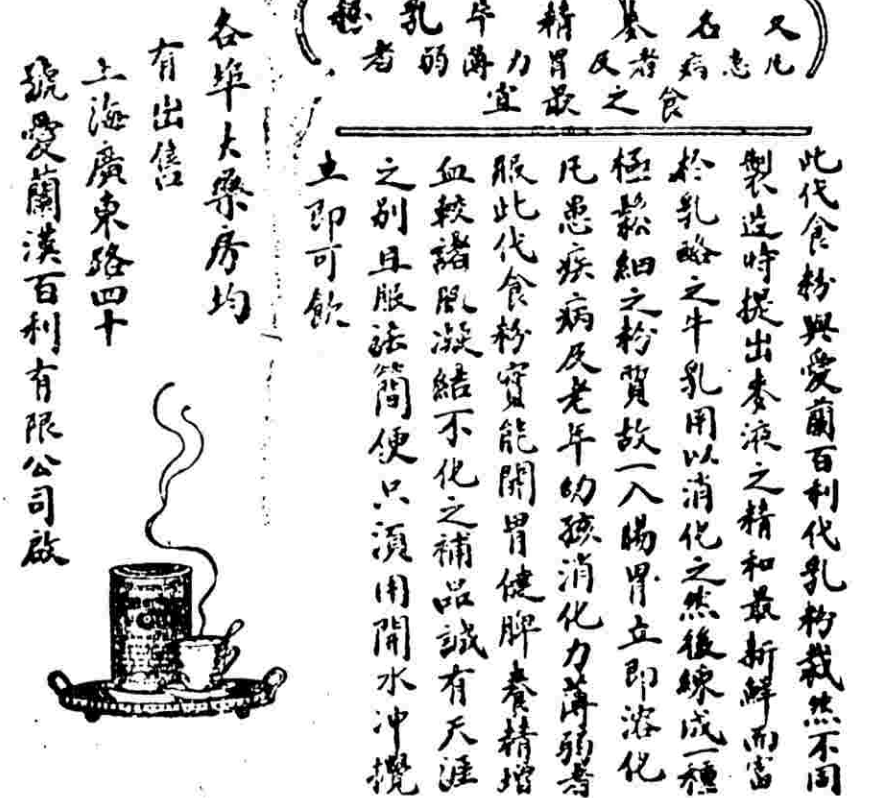 又名麥精牛乳
凡患病者及胃力薄弱者
食之最宜
此代食粉與愛蘭百利代乳粉截然不同
製造時提出麥液之精和最新鮮而富
於乳酪之牛乳用以消化之然後練成一種
極鬆細之粉質故一入腸胃立即溶化
凡患疾病及老年幼孩消化力薄弱者
服此代食粉實能開胃健脾養精增
血較諸凝結不化之補品誠有天涯
之別且服法簡便只須用開水冲攪
立即可飲
各埠大藥房均
有出售
上海廣東路四十
號愛蘭漢百利有限公司啟